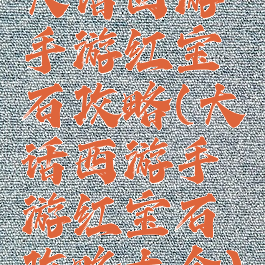 大话西游
手游红宝
石攻略(大
话西游手
游红宝石
攻略大全)